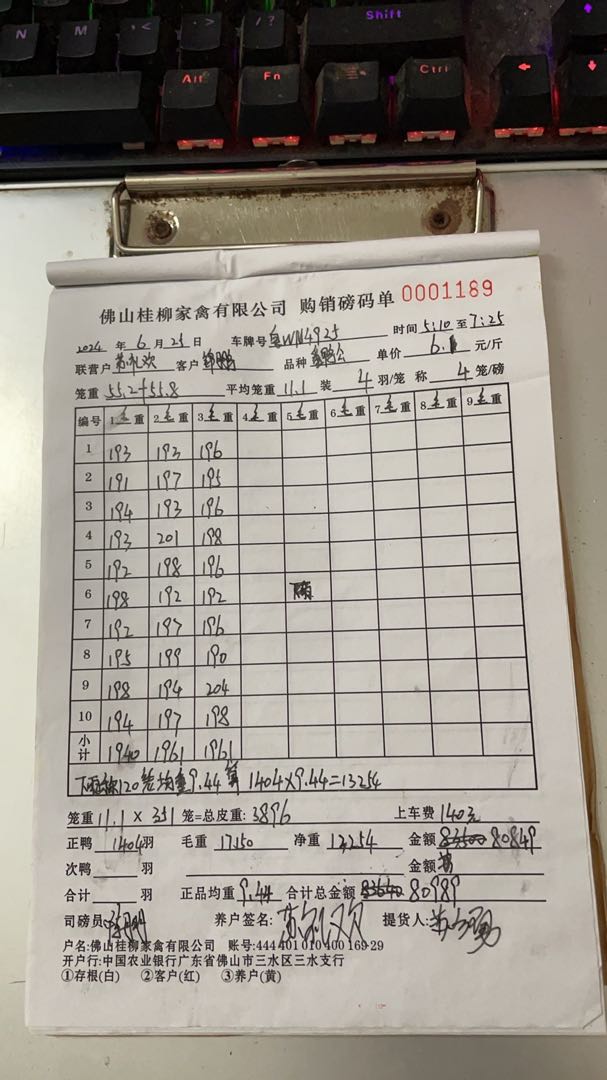 N M < > / ? Shift
Alt Fn Ctrl
佛山桂柳家禽有限公司 购销磅码单 0001189
2024 年 6 月 25 日 车牌号 WN4925 时间 5:10 至 7:25
联营户 苏礼欢 客户 品种 单价 6.1 元/斤
笼重 55.2+55.8 平均笼重 11.1 装 4 羽/笼 称 4 笼/磅
编号 1毛重 2毛重 3毛重 4毛重 5毛重 6毛重 7毛重 8毛重 9毛重
1 193 193 196
2 191 197 195
3 194 193 196
4 193 201 198
5 192 198 196
6 198 192 192
7 192 197 196
8 195 199 190
9 198 194 204
10 194 197 198
小计 1940 1961 1961
下雨称120笼均重9.44算 1404×9.44=13254
笼重 11.1 × 351 笼=总皮重: 3896 上车费 140元
正鸭 1404 羽 毛重 17150 净重 13254 金额 80849
次鸭 羽 金额
合计 羽 正品均重 9.44 合计总金额 80989
司磅员 养户签名: 苏礼欢 提货人:
户名:佛山桂柳家禽有限公司 账号:444 401 010 400 169 29
开户行:中国农业银行广东省佛山市三水区三水支行
①存根(白) ②客户(红) ③养户(黄)